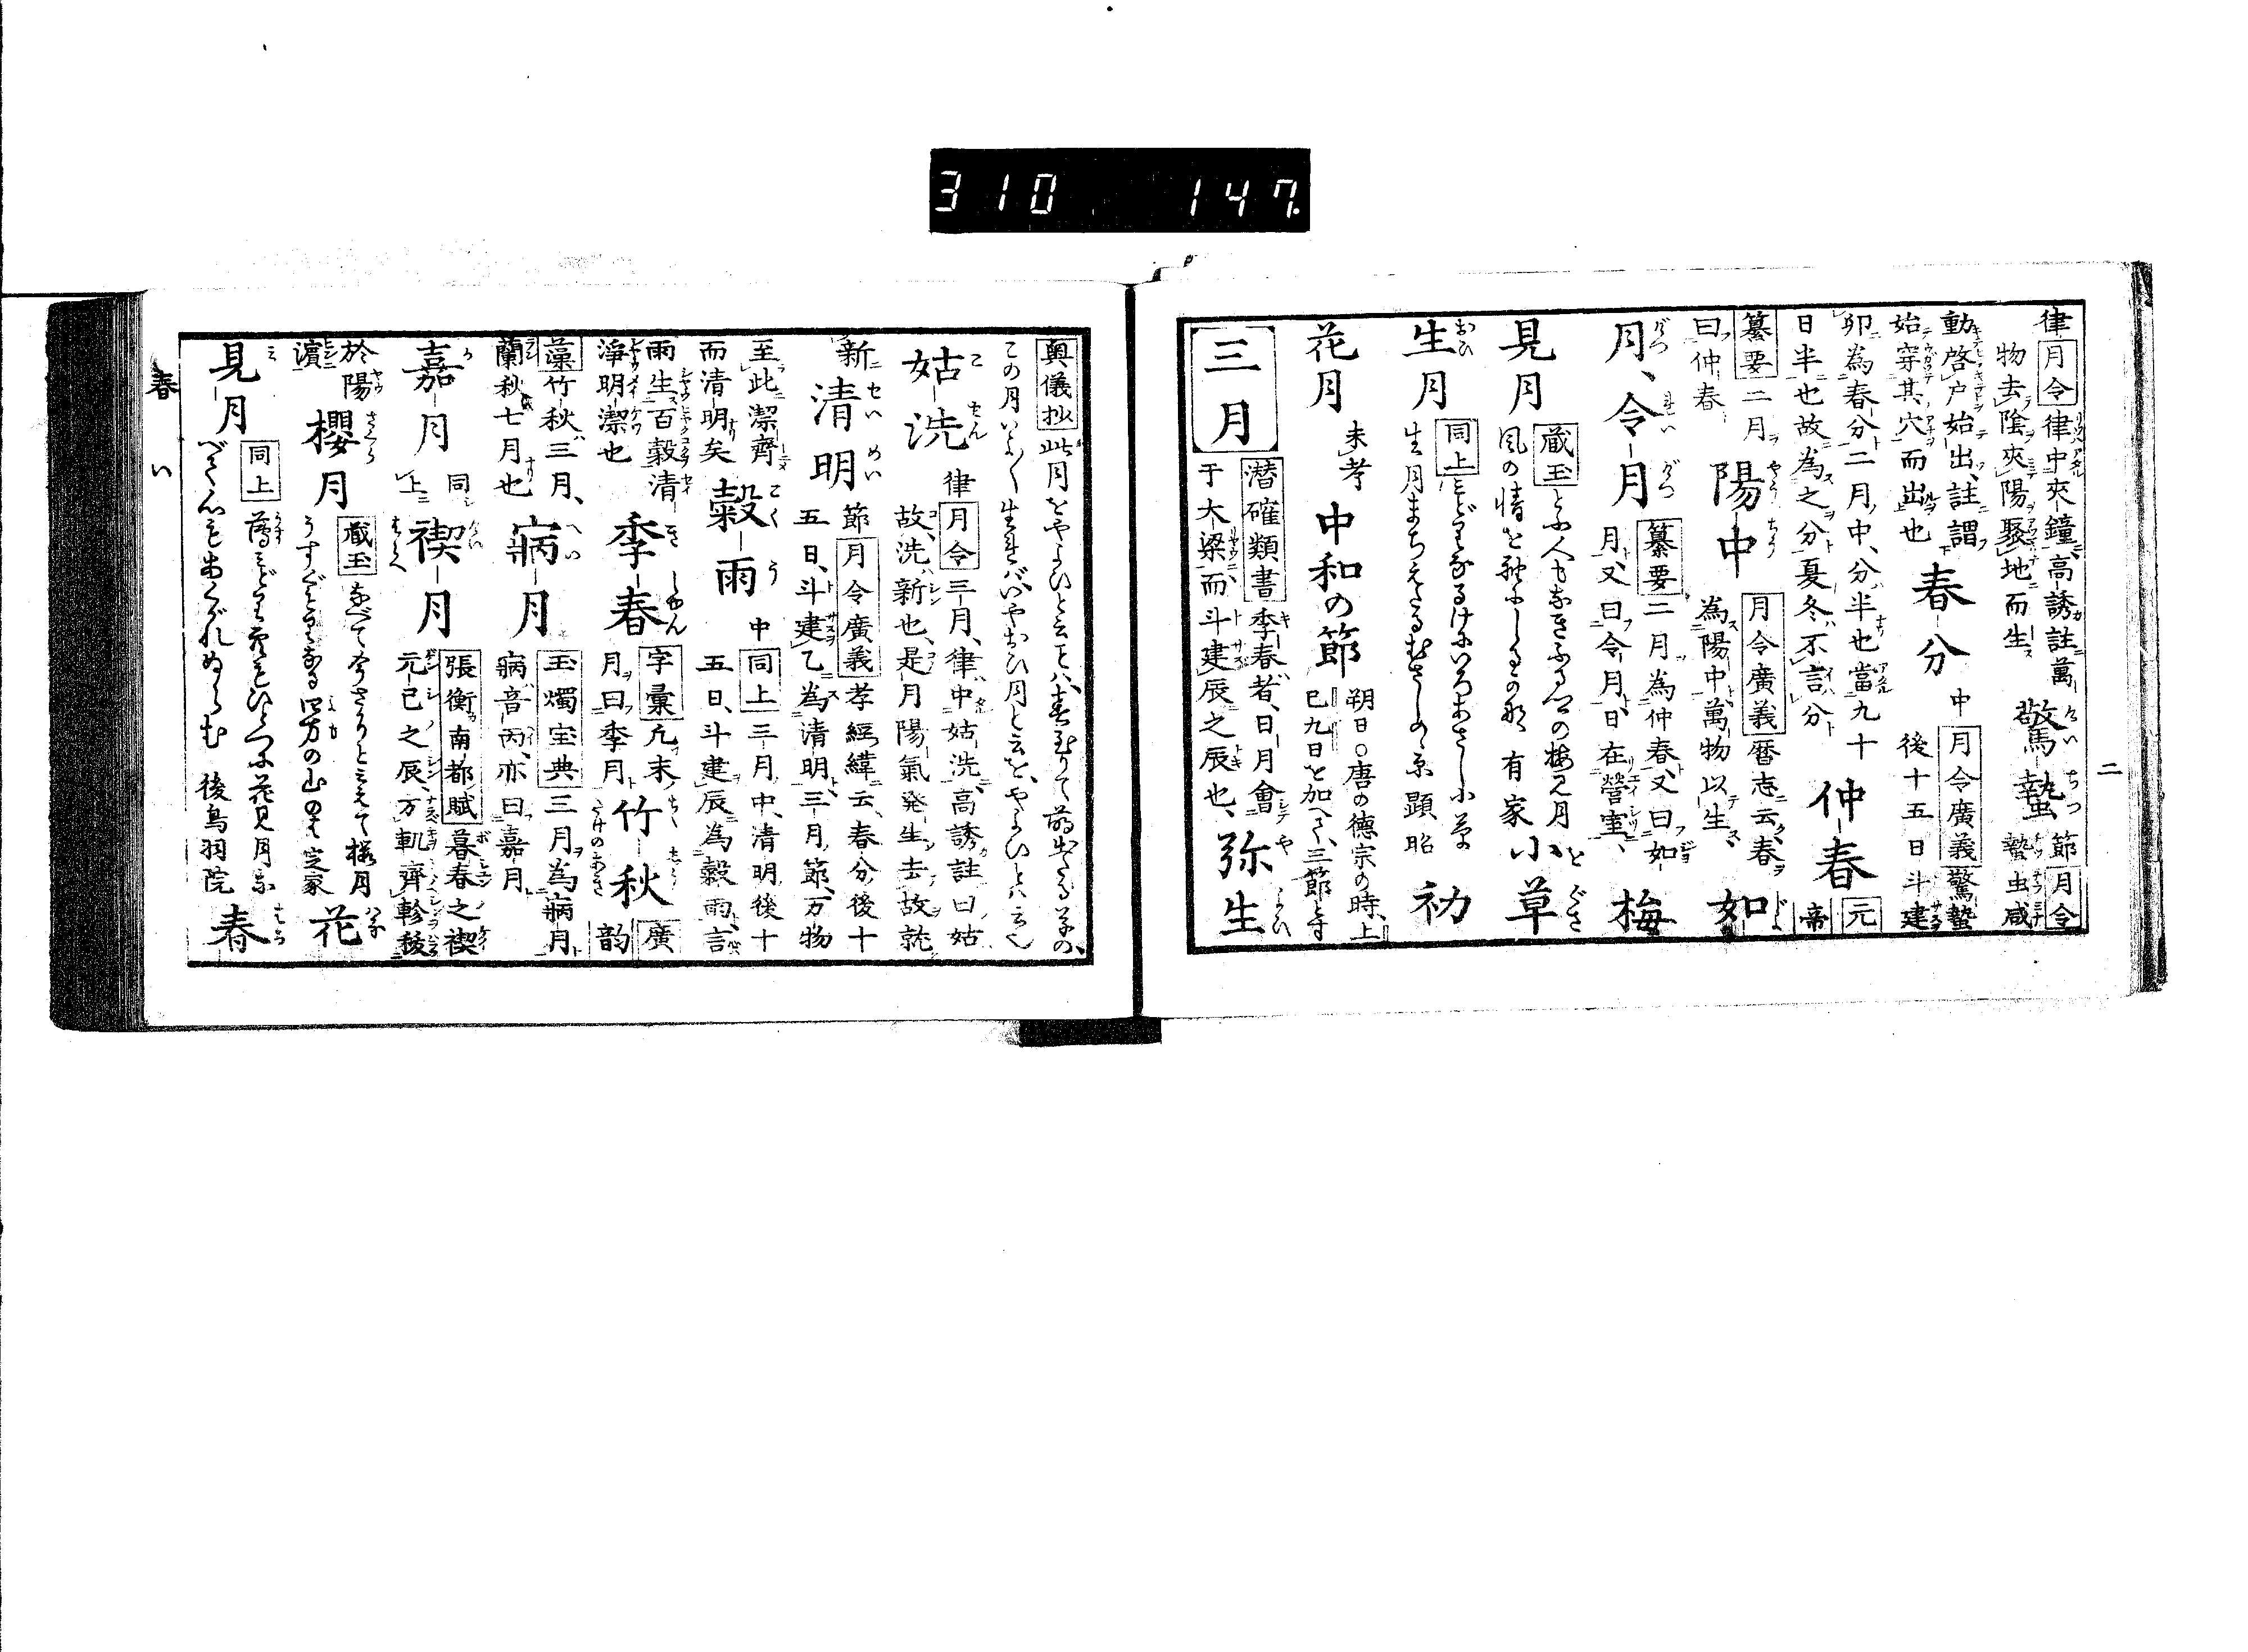 310 147
二
律月令律中夾鐘高誘註萬
物去陰夾陽聚地而生
驚蟄
節月令
蟄虫咸
動啓戸始出註謂
始穿其穴而出也
春分
中月令廣義驚蟄
後十五日斗建
卯為春分二月中分半也當九十
日半也故為之分夏冬不言分
仲春
元
帝
纂要二月
曰仲春
陽中
月令廣義暦志云春
為陽中萬物以生
如
月、令月
纂要二月為仲春又曰如
月又曰令月日在營室
梅
見月
蔵玉とふ人もなきふるての梅見月
風の情と
有家
小草
生月
同上
生月まちえたるむさしの原 顕昭
初
花月
未考
中和の節
朔日○唐の徳宗の時上
巳九日と加へて三節とす
三月
潜確類書季春者日月會
于大梁而斗建辰之辰也
弥生
奥儀抄此月をやよひと云ハ春至りて萌出たる草の
この月いよ〳〵生れバやおひ月と云をやよひとハ云
姑洗
律月令三月律中姑洗高誘註曰姑
故洗新也是月陽氣発生去故就
新
清明
節月令廣義孝經緯云春分後十
五日斗建乙為清明三月節万物
至此潔齊
而清明矣
穀雨
中同上三月中清明後十
五日斗建辰為穀雨言
雨生百穀清
浄明潔也
季春
字彙凡末
月曰季月
竹秋
廣
韵
藻竹秋三月
蘭秋七月也
病月
玉燭宝典三月為病月
病音丙亦曰嘉月
嘉月
同
上
禊月
張衡南都賦暮春之禊
元巳之辰方軌齊軫祓
於陽
濱
櫻月
蔵玉
四方の山のは 定家
花
見月
同上
後鳥羽院
春
春 い